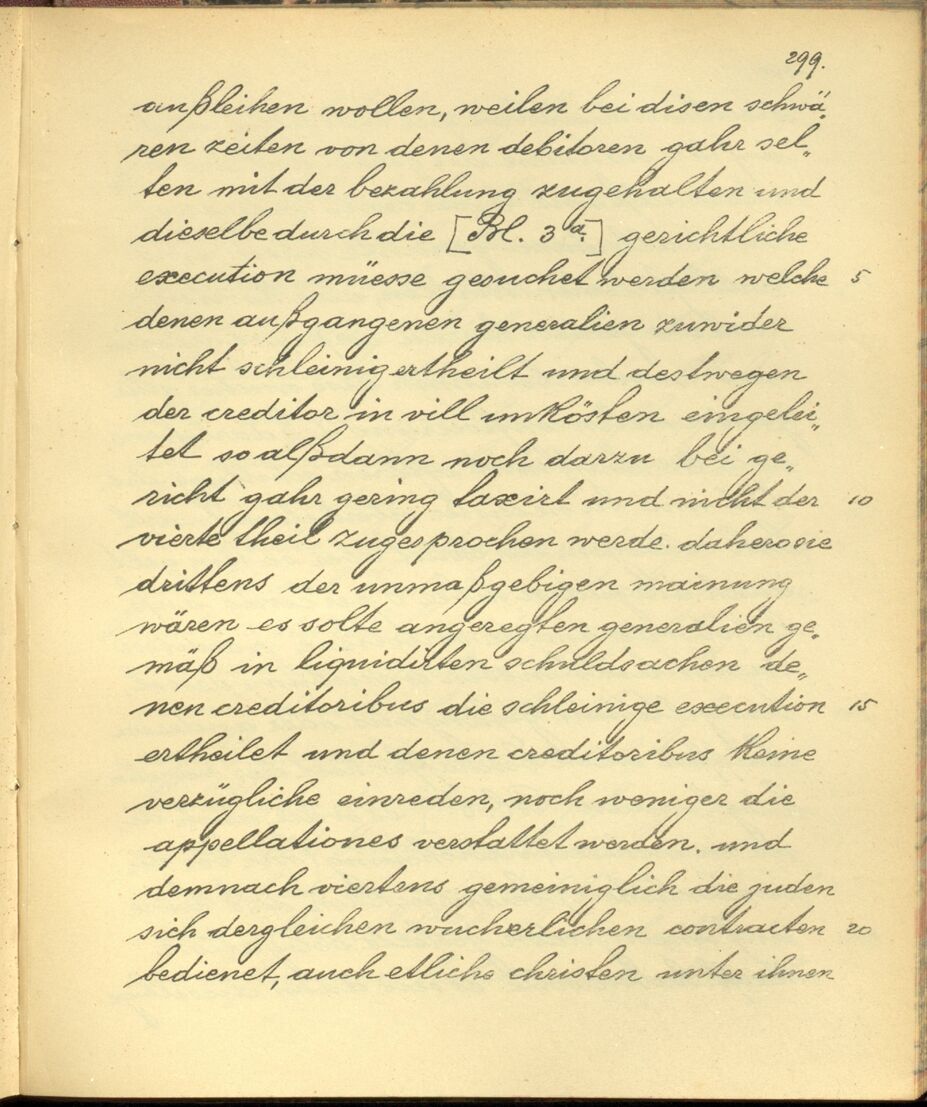 299.
außleihen wollen, weilen bei disen schwä„
ren zeiten von denen debitoren gahr sel„
ten mit der bezahlung zugehalten und
dieselbe durch die [Bl. 3a.] gerichtliche
execution müesse gesuchet werden welche 5
denen außgangenen generalien zuwider
nicht schleinig ertheilt und destwegen
der creditor in vill unkösten eingelei„
tet so alßdann noch darzu bei ge„
richt gahr gering taxirt und nicht der 10
vierte theil zugesprochen werde. dahero sie
drittens der unmaßgebigen mainung
wären es solte angeregten generalien ge„
mäß in liquidirten schuldsachen de„
nen creditoribus die schleinige execution 15
ertheilet und denen creditoribus keine
verzügliche einreden, noch weniger die
appellationes verstattet werden. und
demnach viertens gemeiniglich die juden
sich dergleichen wucherlichen contracten 20
bedienet, auch etliche christen unter ihnen